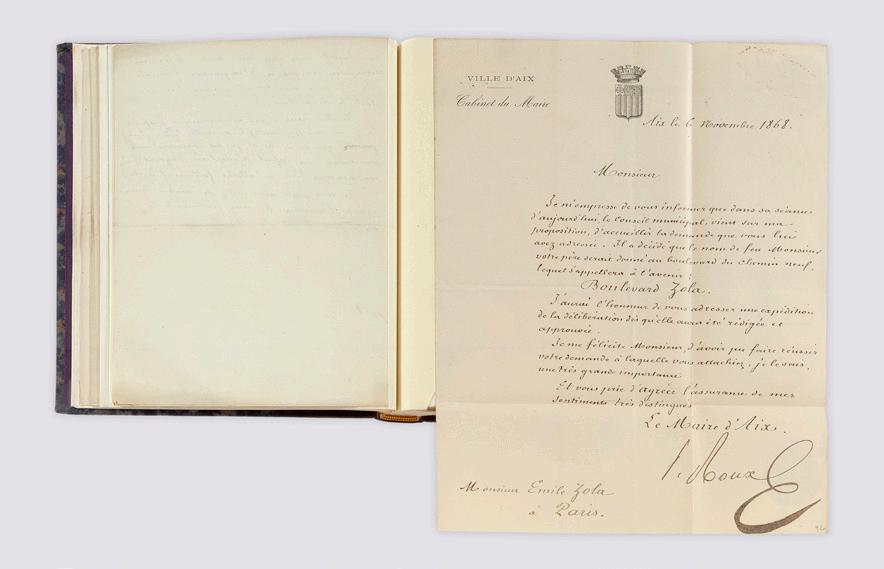 VILLE D'AIX
Cabinet du Maire
Aix le 6 Novembre 1868.
Monsieur
Je m'empresse de vous informer que dans sa séance
d'aujourd'hui, le Conseil municipal, vient sur ma
proposition, d'accueillir la demande que vous lui
avez adressée. Il a décidé que le nom de feu Monsieur
votre père serait donné au boulevard du chemin neuf,
lequel s'appellera à l'avenir :
Boulevard Zola.
J'aurai l'honneur de vous adresser une expédition
de la délibération dès qu'elle aura été rédigée et
approuvée.
Je me félicite Monsieur, d'avoir pu faire réussir
votre demande à laquelle vous attachiez, je le sais,
une très grande importance
Et vous prie d'agréer l'assurance de mes
sentiments très distingués
Le Maire d'Aix.
Roux
Monsieur Emile Zola
à Paris.